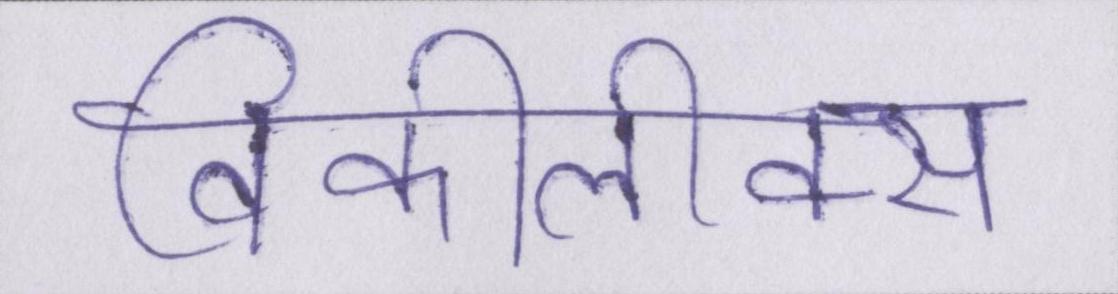 विकीलीक्स